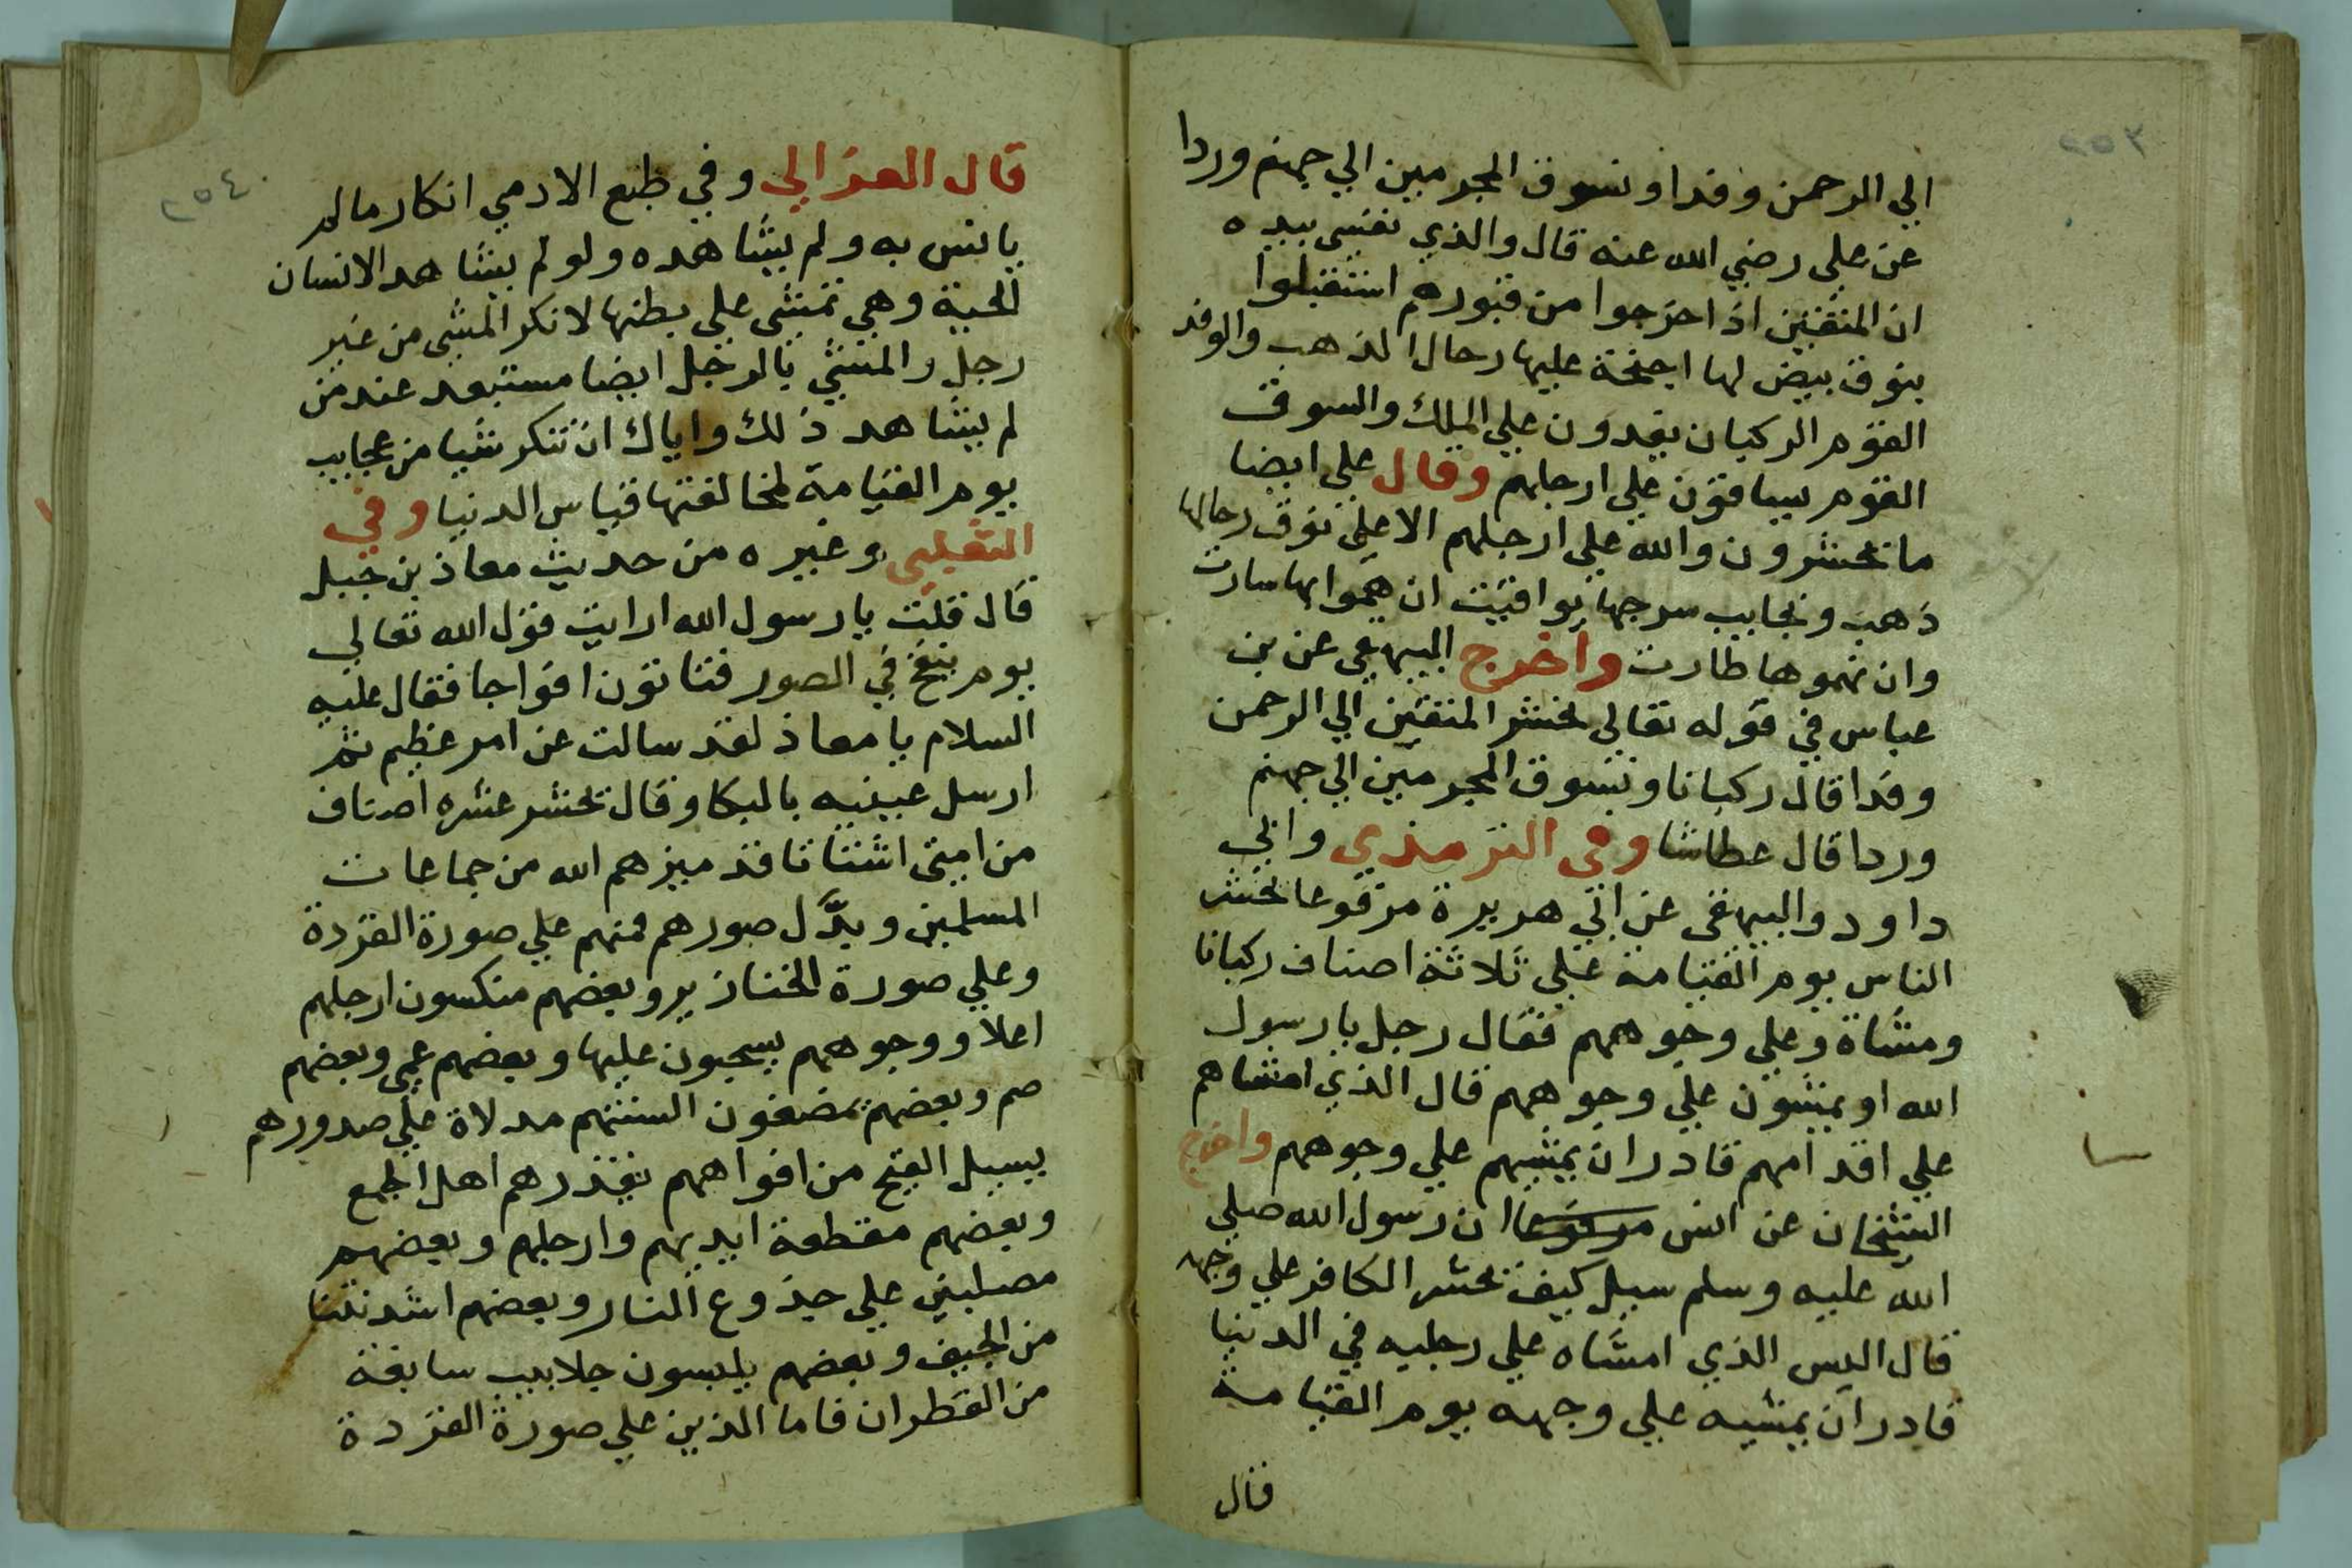 ٢٥٣
الي الرحمن وفدا ونسوق المجرمين الي جهنم وردا
عن علي رضي الله عنه قال والذي نفسي بيده
ان المتقين اذا خرجوا من قبورهم استقبلوا
بنوق بيض لها اجنحة عليها رحال الذهب والوفد
القوم الركبان يفدون علي الملك والسوق
القوم يساقون علي ارجلهم وقال علي ايضا
ما يحشرون والله علي ارجلهم الا علي نوق رحالها
ذهب ونجايب سرجها يواقيت ان هموا بها سارت
وان هموها طارت واخرج البيهقي عن بن
عباس في قوله تعالي نحشر المتقين الي الرحمن
وفدا قال ركبانا ونسوق المجرمين الي جهنم
وردا قال عطاشا وفي الترمذي وابي
داود والبيهقي عن ابي هريرة مرفوعا يحشر
الناس يوم القيامة علي ثلاثة اصناف ركبانا
ومشاة وعلي وجوههم فقال رجل يا رسول
الله او يمشون علي وجوههم قال الذي امشاهم
علي اقدامهم قادر ان يمشيهم علي وجوههم واخرج
الشيخان عن انس مرفوعا ان رسول الله صلي
الله عليه وسلم سيل كيف يحشر الكافر علي وجهه
قال اليس الذي امشاه علي رجليه في الدنيا
قادر ان يمشيه علي وجهه يوم القيامة
قال
٢٥٤
قال الغزالي وفي طبع الادمي انكار مالم
يانس به ولم يشاهده ولو لم يشاهد الانسان
الحية وهي تمشي علي بطنها لانكر المشي من غير
رجل والمشي بالرجل ايضا مستبعد عند من
لم يشاهد ذلك واياك ان تنكر شيا من عجايب
يوم القيامة لمخالفتها قياس الدنيا وفي
الثعلبي وغيره من حديث معاذ بن جبل
قال قلت يا رسول الله ارايت قول الله تعالي
يوم ينفخ في الصور فتاتون افواجا فقال عليه
السلام يا معاذ لقد سالت عن امر عظيم ثم
ارسل عينيه بالبكا وقال تحشر عشره اصناف
من امتي اشتاتا قد ميزهم الله من جماعات
المسلمين وبدَّل صورهم فمنهم علي صورة القردة
وعلي صورة الخنازير وبعضهم منكسون ارجلهم
اعلا ووجوههم يسحبون عليها وبعضهم عمي وبعضهم
صم وبعضهم يمضغون السنتهم مدلاة علي صدورهم
يسيل القيح من افواههم يقذرهم اهل الجمع
وبعضهم مقطعة ايديهم وارجلهم وبعضهم
مصلبين علي جذوع النار وبعضهم اشد نتنا
من الجيف وبعضهم يلبسون جلابيب سابغة
من القطران فاما الذين علي صورة القردة